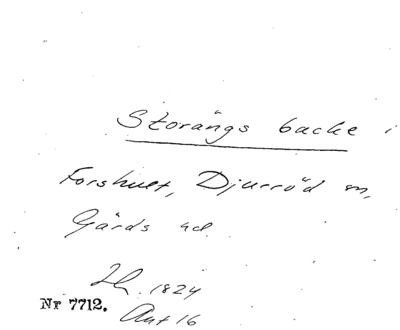 Storängs backe i
Forshult, Djurröd sn,
Gärds hd
1824
Nr 7712.
Akt 16